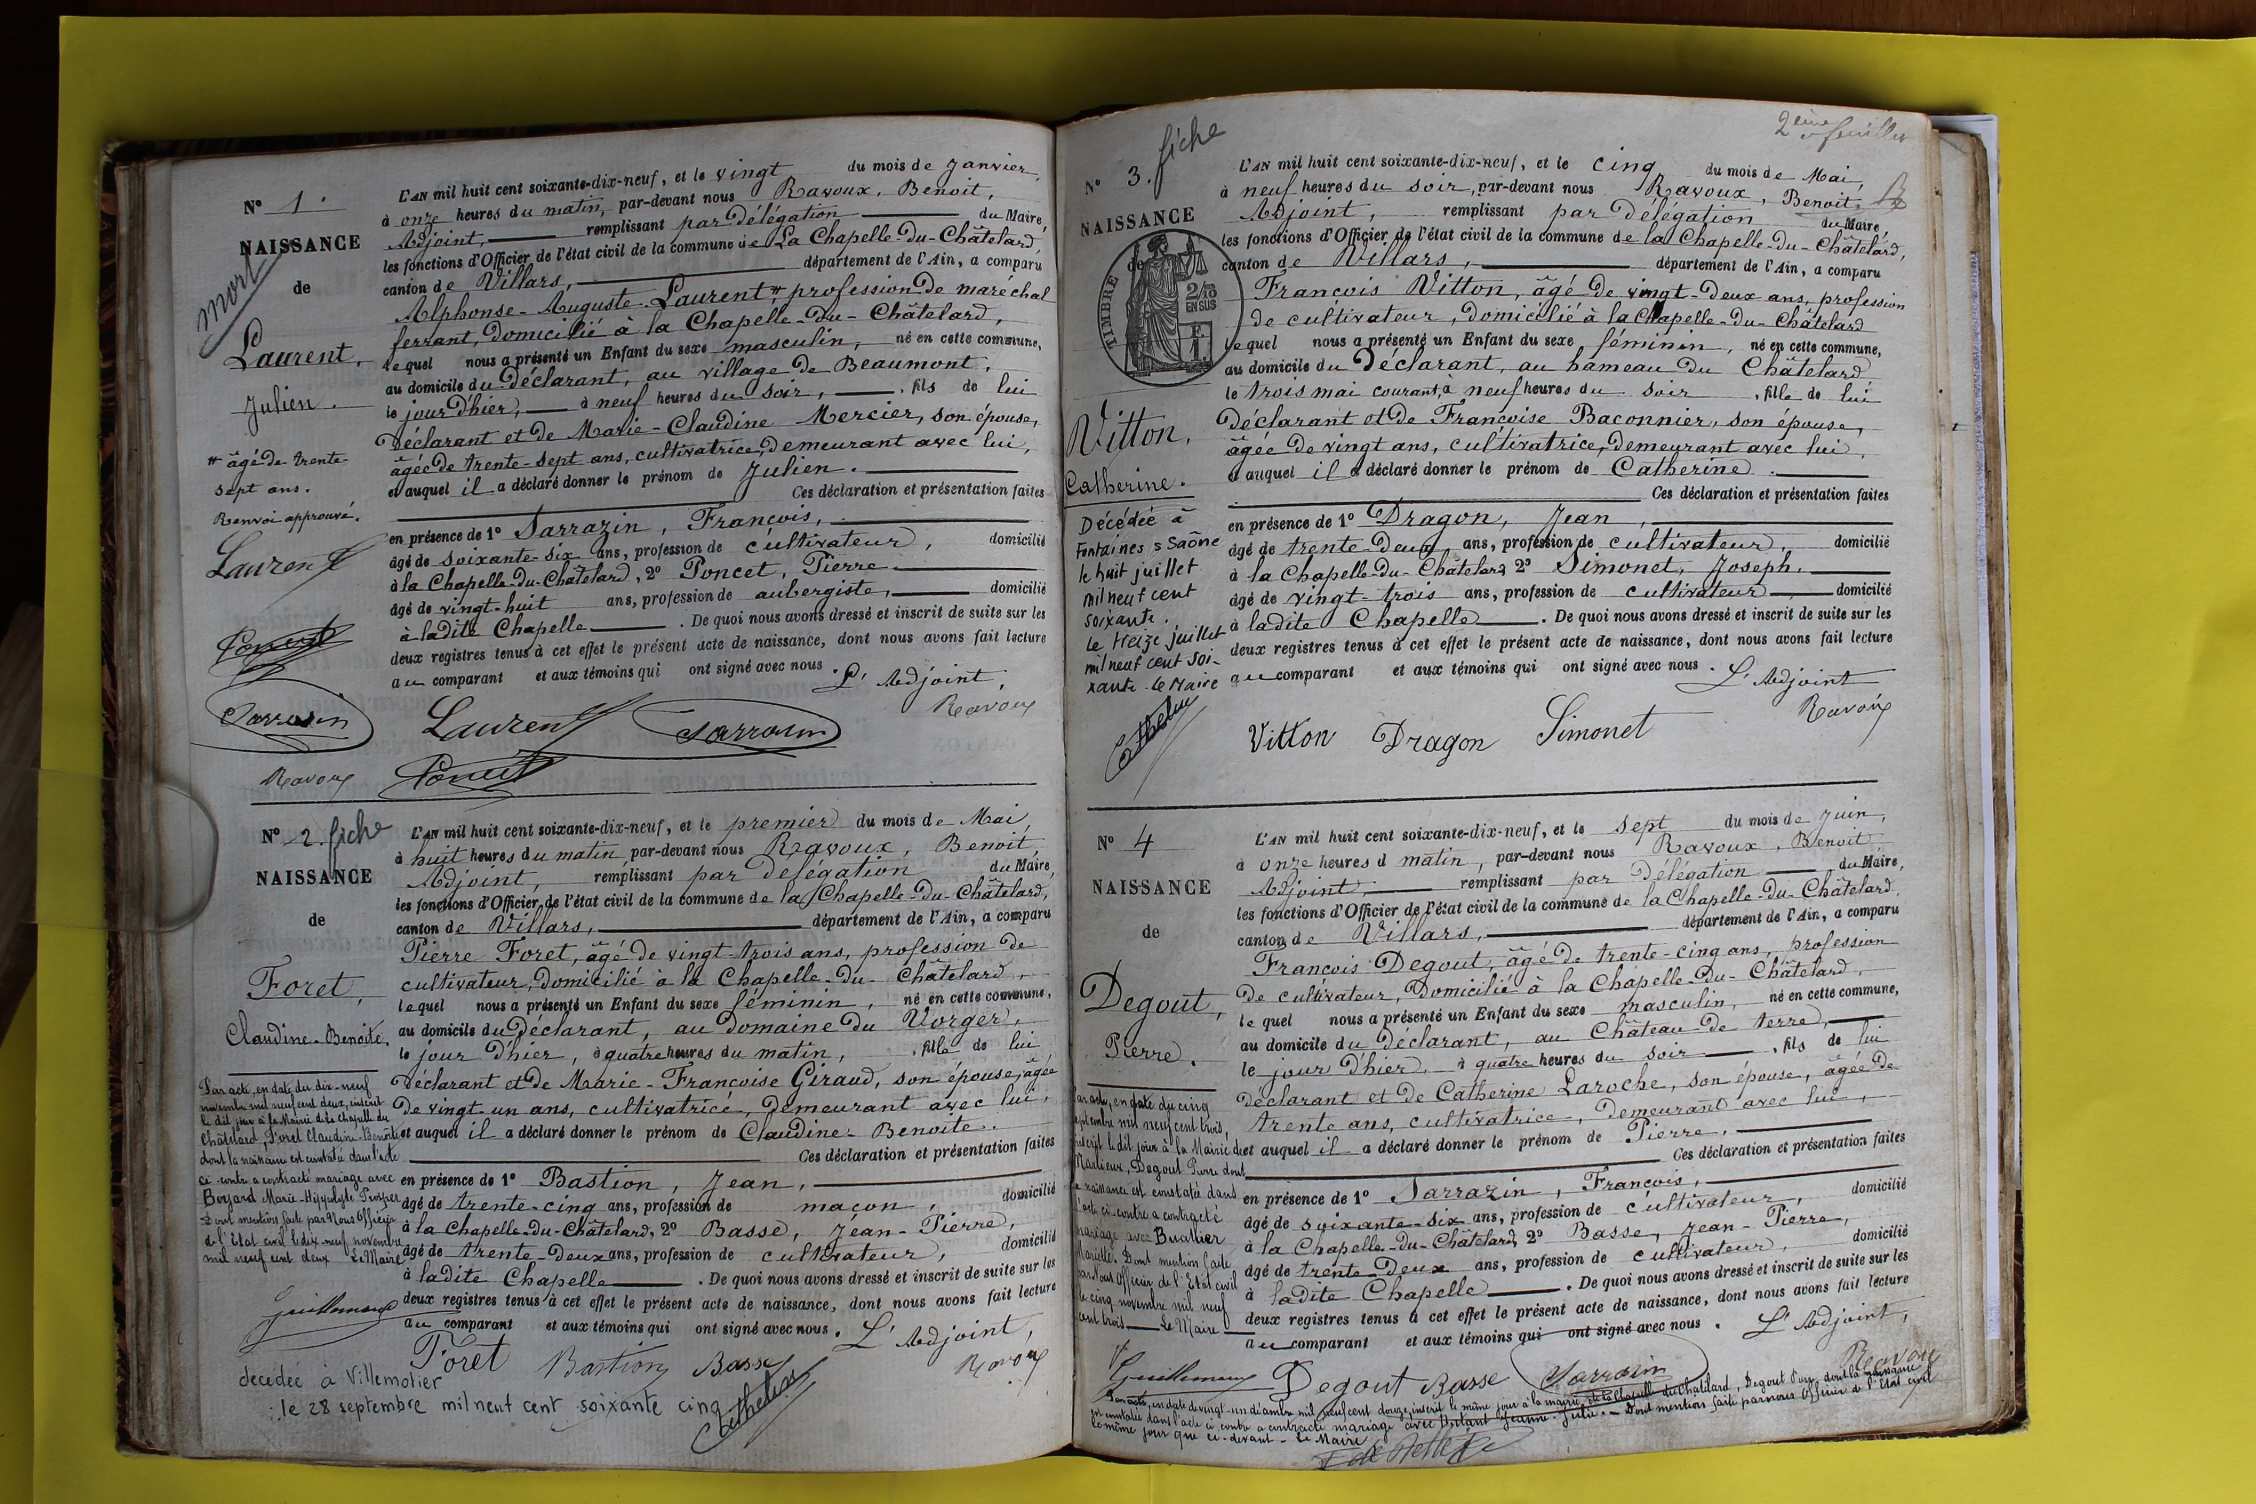 N° 1.
NAISSANCE
de
mort
Laurent,
Julien.
# âgé de trente-
sept ans.
Renvoi approuvé.
Laurent
Poncet
Sarrasin
Ravoux
L'AN mil huit cent soixante-dix-neuf, et le vingt du mois de Janvier,
à onze heures du matin, par-devant nous Ravoux, Benoit,
Adjoint, remplissant par délégation du Maire,
les fonctions d'Officier de l'état civil de la commune de La Chapelle-du-Châtelard,
canton de Villars, département de l'Ain, a comparu
Alphonse-Auguste Laurent, # profession de maréchal
ferrant, domicilié à la Chapelle-du-Châtelard,
lequel nous a présenté un Enfant du sexe masculin, né en cette commune,
au domicile du déclarant, au village de Beaumont,
le jour d'hier, à neuf heures du soir, , fils de lui
déclarant et de Marie-Claudine Mercier, son épouse,
âgée de trente-sept ans, cultivatrice, demeurant avec lui,
et auquel il a déclaré donner le prénom de Julien.
Ces déclaration et présentation faites
en présence de 1° Sarrazin, François,
âgé de soixante-six ans, profession de cultivateur, domicilié
à la Chapelle-du-Châtelard, 2° Poncet, Pierre
âgé de vingt-huit ans, profession de aubergiste, domicilié
à ladite Chapelle . De quoi nous avons dressé et inscrit de suite sur les
deux registres tenus à cet effet le présent acte de naissance, dont nous avons fait lecture
au comparant et aux témoins qui ont signé avec nous. L'Adjoint,
Ravoux
Laurent Sarrasin
Poncet
N° 2. fiche
NAISSANCE
de
Foret,
Claudine-Benoite.
Par acte, en date du dix-neuf
novembre mil neuf cent deux, inscrit
le dit jour à la Mairie de la Chapelle du
Châtelard, Foret Claudine-Benoite
dont la naissance est constatée dans l'acte
ci-contre a contracté mariage avec
Boyard Marie-Hippolyte Prosper
Dont mention faite par Nous Officier
de l'Etat civil le dix-neuf novembre
mil neuf cent deux Le Maire
Guillemaud
L'AN mil huit cent soixante-dix-neuf, et le premier du mois de Mai,
à huit heures du matin, par-devant nous Ravoux, Benoit,
Adjoint, remplissant par délégation du Maire,
les fonctions d'Officier de l'état civil de la commune de la Chapelle-du-Châtelard,
canton de Villars, département de l'Ain, a comparu
Pierre Foret, âgé de vingt-trois ans, profession de
cultivateur, domicilié à la Chapelle-du-Châtelard,
lequel nous a présenté un Enfant du sexe féminin, né en cette commune,
au domicile du déclarant, au domaine du Vorger,
le jour d'hier, à quatre heures du matin, , fille de lui
déclarant et de Marie-Françoise Giraud, son épouse, âgée
de vingt-un ans, cultivatrice, demeurant avec lui,
et auquel il a déclaré donner le prénom de Claudine-Benoite.
Ces déclaration et présentation faites
en présence de 1° Bastion, Jean,
âgé de trente-cinq ans, profession de maçon, domicilié
à la Chapelle-du-Châtelard, 2° Basse, Jean-Pierre,
âgé de trente-deux ans, profession de cultivateur, domicilié
à ladite Chapelle . De quoi nous avons dressé et inscrit de suite sur les
deux registres tenus à cet effet le présent acte de naissance, dont nous avons fait lecture
au comparant et aux témoins qui ont signé avec nous. L'Adjoint,
Foret Bastion Basse Ravoux
décédée à Villemotier
le 28 septembre mil neuf cent soixante cinq
2ème feuillet
N° 3. fiche
NAISSANCE
de
TIMBRE
2/10
EN SUS
F.
1.
Vitton,
Catherine.
Décédée à
Fontaines s Saône
le huit juillet
mil neuf cent
soixante.
Le treize juillet
mil neuf cent soi-
xante. Le Maire
L'AN mil huit cent soixante-dix-neuf, et le cinq du mois de Mai,
à neuf heures du soir, par-devant nous Ravoux, Benoit,
Adjoint, remplissant par délégation du Maire,
les fonctions d'Officier de l'état civil de la commune de la Chapelle-du-Châtelard,
canton de Villars, département de l'Ain, a comparu
François Vitton, âgé de vingt-deux ans, profession
de cultivateur, domicilié à la Chapelle-du-Châtelard
lequel nous a présenté un Enfant du sexe féminin, né en cette commune,
au domicile du déclarant, au hameau du Châtelard
le trois mai courant, à neuf heures du soir , fille de lui
déclarant et de Françoise Baconnier, son épouse,
âgée de vingt ans, cultivatrice, demeurant avec lui,
et auquel il a déclaré donner le prénom de Catherine.
Ces déclaration et présentation faites
en présence de 1° Dragon, Jean,
âgé de trente-deux ans, profession de cultivateur, domicilié
à la Chapelle-du-Châtelard, 2° Simonet, Joseph.
âgé de vingt-trois ans, profession de cultivateur, domicilié
à ladite Chapelle . De quoi nous avons dressé et inscrit de suite sur les
deux registres tenus à cet effet le présent acte de naissance, dont nous avons fait lecture
au comparant et aux témoins qui ont signé avec nous. L'Adjoint
Ravoux
Vitton Dragon Simonet
N° 4
NAISSANCE
de
Degout,
Pierre.
Par acte, en date du cinq
septembre mil neuf cent trois,
inscrit le dit jour à la Mairie de
Marlieux, Degout Pierre dont
la naissance est constatée dans
l'acte ci-contre a contracté
mariage avec Buathier
Mariette. Dont mention faite
par Nous Officier de l'Etat civil
le cinq novembre mil neuf
cent trois Le Maire
Guillemaud
L'AN mil huit cent soixante-dix-neuf, et le sept du mois de Juin,
à onze heures d matin, par-devant nous Ravoux, Benoit
Adjoint remplissant par délégation du Maire,
les fonctions d'Officier de l'état civil de la commune de la Chapelle-du-Châtelard,
canton de Villars, département de l'Ain, a comparu
François Degout, âgé de trente-cinq ans, profession
de cultivateur, domicilié à la Chapelle-du-Châtelard,
lequel nous a présenté un Enfant du sexe masculin, né en cette commune,
au domicile du déclarant, au Château de terre,
le jour d'hier, à quatre heures du soir , fils de lui
déclarant et de Catherine Laroche, son épouse, âgée de
trente ans, cultivatrice, demeurant avec lui,
et auquel il a déclaré donner le prénom de Pierre.
Ces déclaration et présentation faites
en présence de 1° Sarrazin, François,
âgé de soixante-six ans, profession de cultivateur, domicilié
à la Chapelle-du-Châtelard, 2° Basse, Jean-Pierre,
âgé de trente-deux ans, profession de cultivateur, domicilié
à ladite Chapelle . De quoi nous avons dressé et inscrit de suite sur les
deux registres tenus à cet effet le présent acte de naissance, dont nous avons fait lecture
au comparant et aux témoins qui ont signé avec nous. L'Adjoint,
Degout Basse Sarrasin Ravoux
Par acte, en date de vingt-un décembre mil neuf cent douze, inscrit le même jour à la mairie de la Chapelle du Châtelard, Degout Pierre dont la naissance
est constatée dans l'acte ci contre a contracté mariage avec Jeanne-Julie. - Dont mention faite par nous Officier de l'Etat civil
le même jour que ci-devant - Le Maire